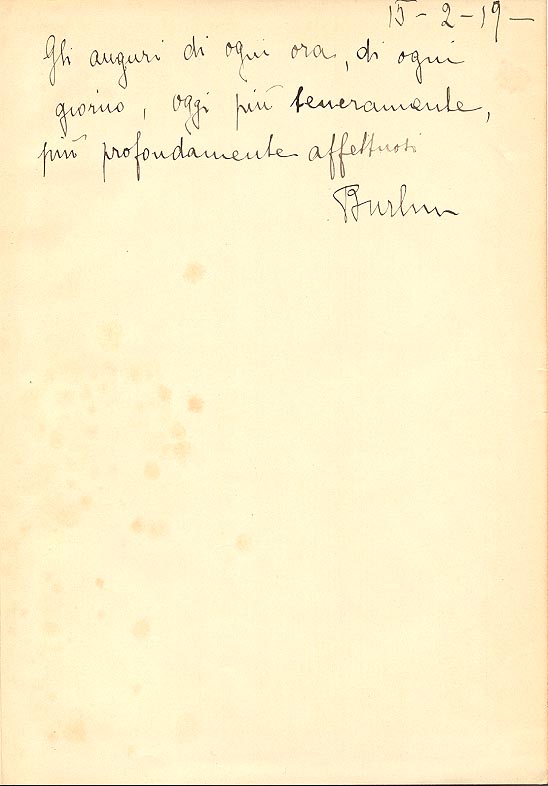 15-2-19-
Gli auguri di ogni ora, di ogni
giorno, oggi più teneramente,
più profondamente affettuosi